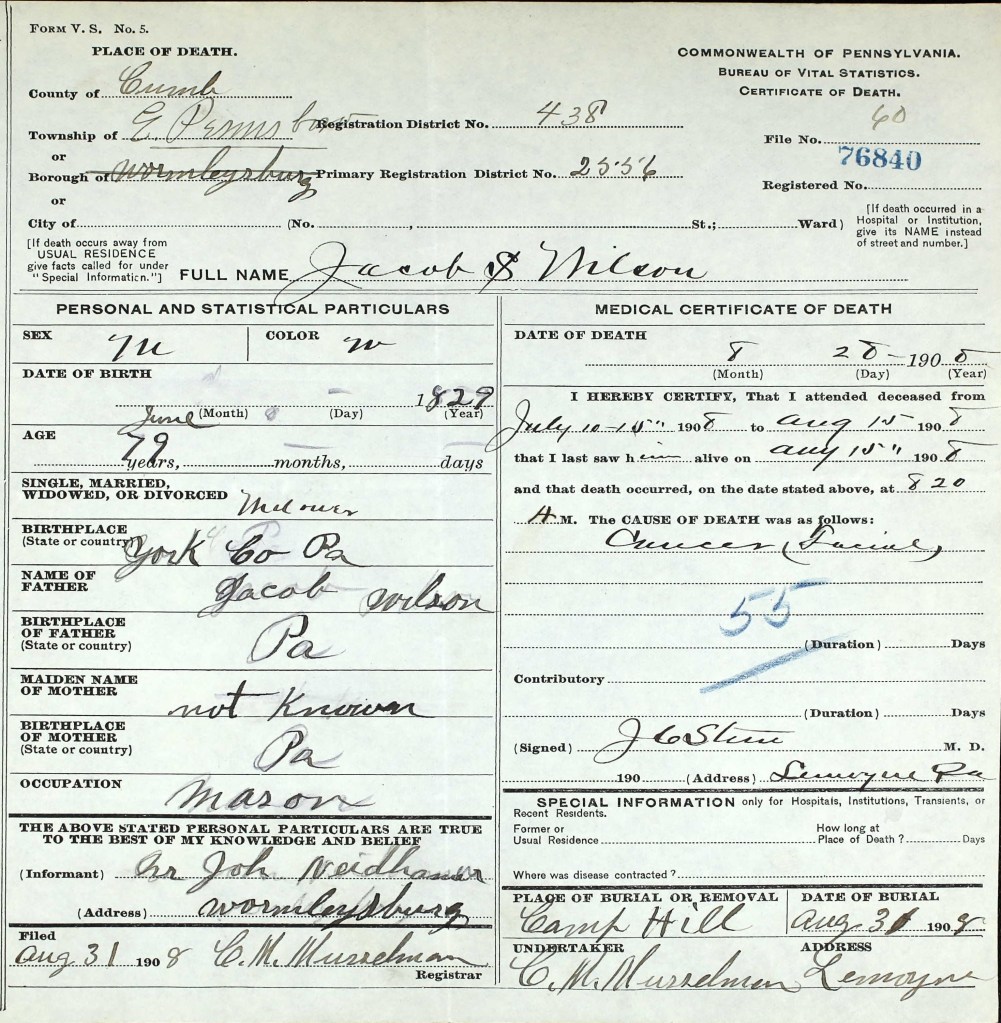 FORM V. S. No. 5.
PLACE OF DEATH.
County of Cumb
Township of E. Pennsboro
or
Borough of Wormleysburg
or
City of (No. , St.; Ward)
COMMONWEALTH OF PENNSYLVANIA.
BUREAU OF VITAL STATISTICS.
CERTIFICATE OF DEATH.
Registration District No. 438
60
File No.
76840
Primary Registration District No. 2556
Registered No.
[If death occurred in a
Hospital or Institution,
give its NAME instead
of street and number.]
[If death occurs away from
USUAL RESIDENCE
give facts called for under
"Special Information."]
FULL NAME Jacob S Wilson
PERSONAL AND STATISTICAL PARTICULARS
SEX M
COLOR W
DATE OF BIRTH
June 8 1829
(Month) (Day) (Year)
AGE
79 years, — months, — days
SINGLE, MARRIED,
WIDOWED, OR DIVORCED
BIRTHPLACE
(State or country) York Co Pa
NAME OF
FATHER Jacob Wilson
BIRTHPLACE
OF FATHER
(State or country) Pa
MAIDEN NAME
OF MOTHER not Known
BIRTHPLACE
OF MOTHER
(State or country) Pa
OCCUPATION Mason
THE ABOVE STATED PERSONAL PARTICULARS ARE TRUE
TO THE BEST OF MY KNOWLEDGE AND BELIEF
(Informant) Mr John Neidhamer
(Address) Wormleysburg
Filed
Aug 31 1908 C. M. Musselman
Registrar
MEDICAL CERTIFICATE OF DEATH
DATE OF DEATH
8 28 1908
(Month) (Day) (Year)
I HEREBY CERTIFY, That I attended deceased from
July 10-15" 1908 to Aug 15 1908
that I last saw him alive on Aug 15" 1908
and that death occurred, on the date stated above, at 8 20
A M. The CAUSE OF DEATH was as follows:
Cancer (Facial)
55
(Duration) Days
Contributory
(Duration) Days
(Signed) M. D.
190 (Address) Lemoyne Pa
SPECIAL INFORMATION only for Hospitals, Institutions, Transients, or
Recent Residents.
Former or
Usual Residence
How long at
Place of Death? Days
Where was disease contracted?
PLACE OF BURIAL OR REMOVAL
Camp Hill
DATE OF BURIAL
Aug 31 1908
UNDERTAKER
C. M. Musselman
ADDRESS
Lemoyne